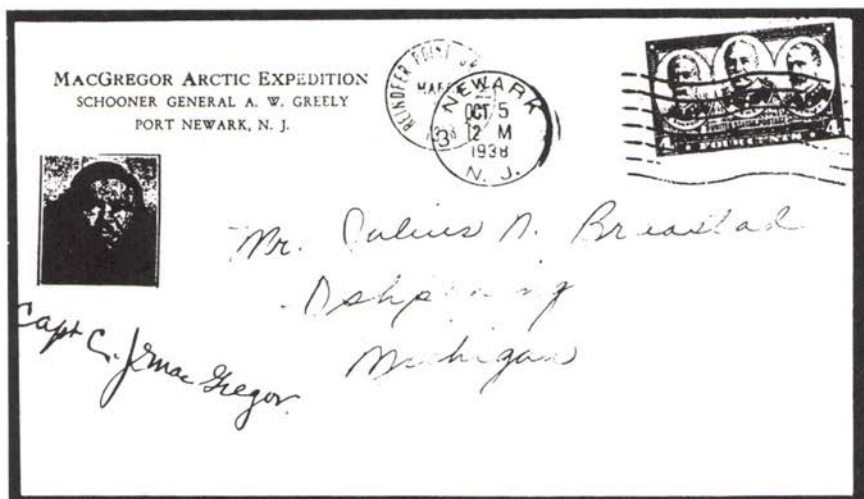 MACGREGOR ARCTIC EXPEDITION
SCHOONER GENERAL A. W. GREELY
PORT NEWARK, N. J.
REINDEER POINT
MAR
NEWARK
OCT 5
12 M
1938
N. J.
UNITED STATES POSTAGE
4 FOUR CENTS 4
Mr. Julius N.
Ishpeming
Michigan
Capt C. J. MacGregor.